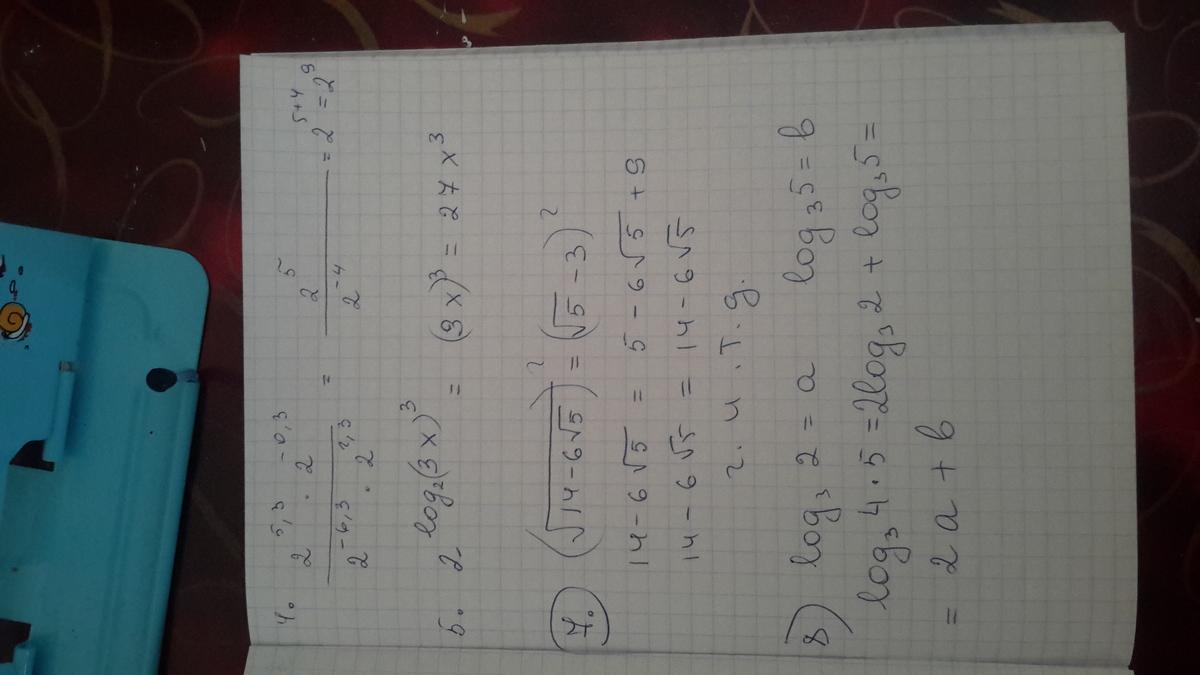 4. (2^5,3 · 2^-0,3)/(2^-6,3 · 2^2,3) = 2^5/2^-4 = 2^5+4 = 2^9
5. 2^log₂(3x)^3 = (3x)^3 = 27x^3
7. (√(14-6√5))^2 = (√5-3)^2
14-6√5 = 5-6√5+9
14-6√5 = 14-6√5
г. ч. т. д.
8) log₃ 2 = a log₃5 = b
log₃4·5 = 2log₃2 + log₃5 =
= 2a+b